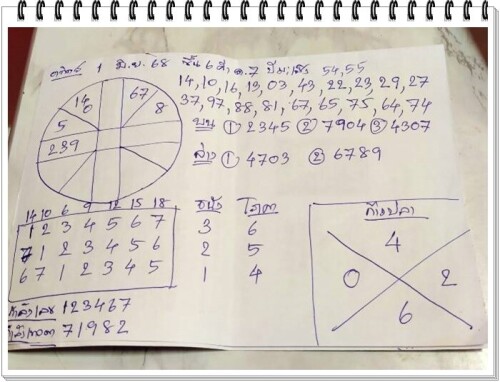 อาทิตย์ 1 มิ.ย. 68 ขึ้น 6 ค่ำ ด.7 ปีมะเส็ง 54,55
14,10,16,13,03,43,22,23,29,27
37,97,88,81,67,65,75,64,74
บน ① 2345 ② 7904 ③ 4307
ล่าง ① 4703 ② 6789
14 0
67
8
5
239
14 10 6 9 12 15 18
1 2 3 4 5 6 7
7 1 2 3 4 5 6
6 7 1 2 3 4 5
3 6
2 5
1 4
4
0 2
6
123467
71982